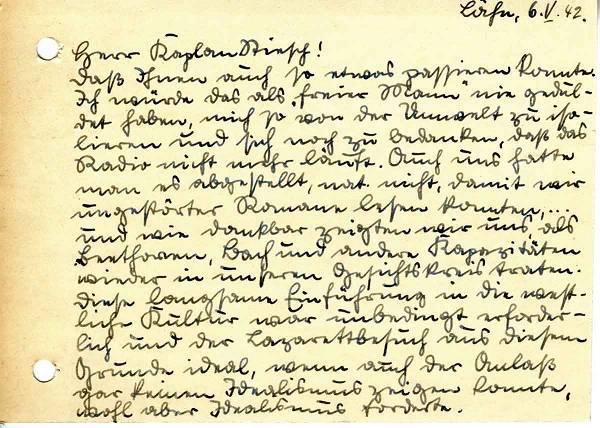 Lähn, 6.V.42.
Herr Kaplan Stiesch!
Daß Ihnen auch so etwas passieren konnte.
Ich würde das als "freier Mann" nie gedul-
det haben, mich so von der Umwelt zu iso-
lieren und sich noch zu bedanken, daß das
Radio nicht mehr läuft. Auch uns hatte
man es abgestellt, nat. nicht, damit wir
ungestörter Romane lesen konnten,...
und wie dankbar zeigten wir uns, als
Beethoven, Bach und andere Kapazitäten
wieder in unseren Gesichtskreis traten.
Diese langsame Einführung in die west-
liche Kultur war unbedingt erforder-
lich und der Lazarettbesuch aus diesem
Grunde ideal, wenn auch der Anlaß
gar keinen Idealismus zeigen konnte,
wohl aber Idealismus forderte.